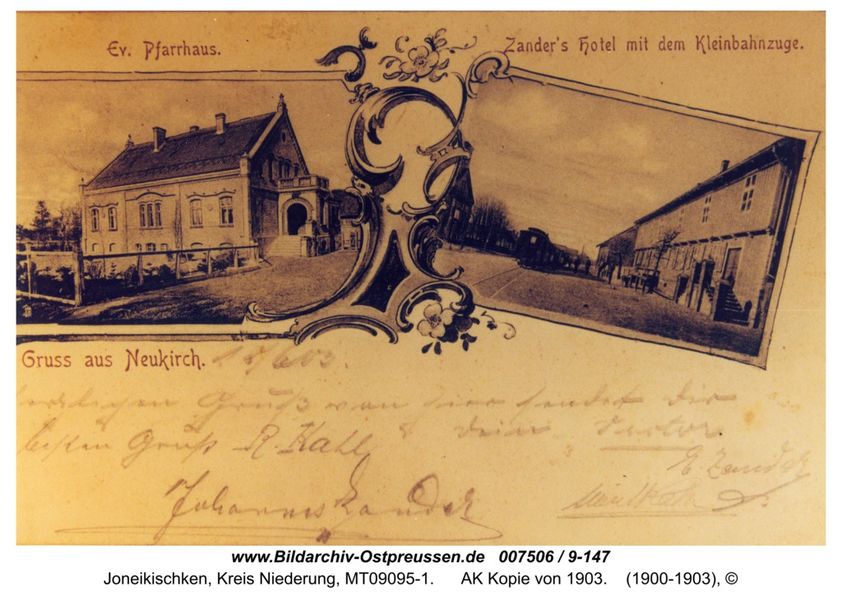 Ev. Pfarrhaus.
Zander's Hotel mit dem Kleinbahnzuge.
Gruss aus Neukirch.
Gruß von hier sendet dir
besten Gruß R. Kahl dein
Johannes Zander
E. Zander
www.Bildarchiv-Ostpreussen.de 007506 / 9-147
Joneikischken, Kreis Niederung, MT09095-1. AK Kopie von 1903. (1900-1903), ©